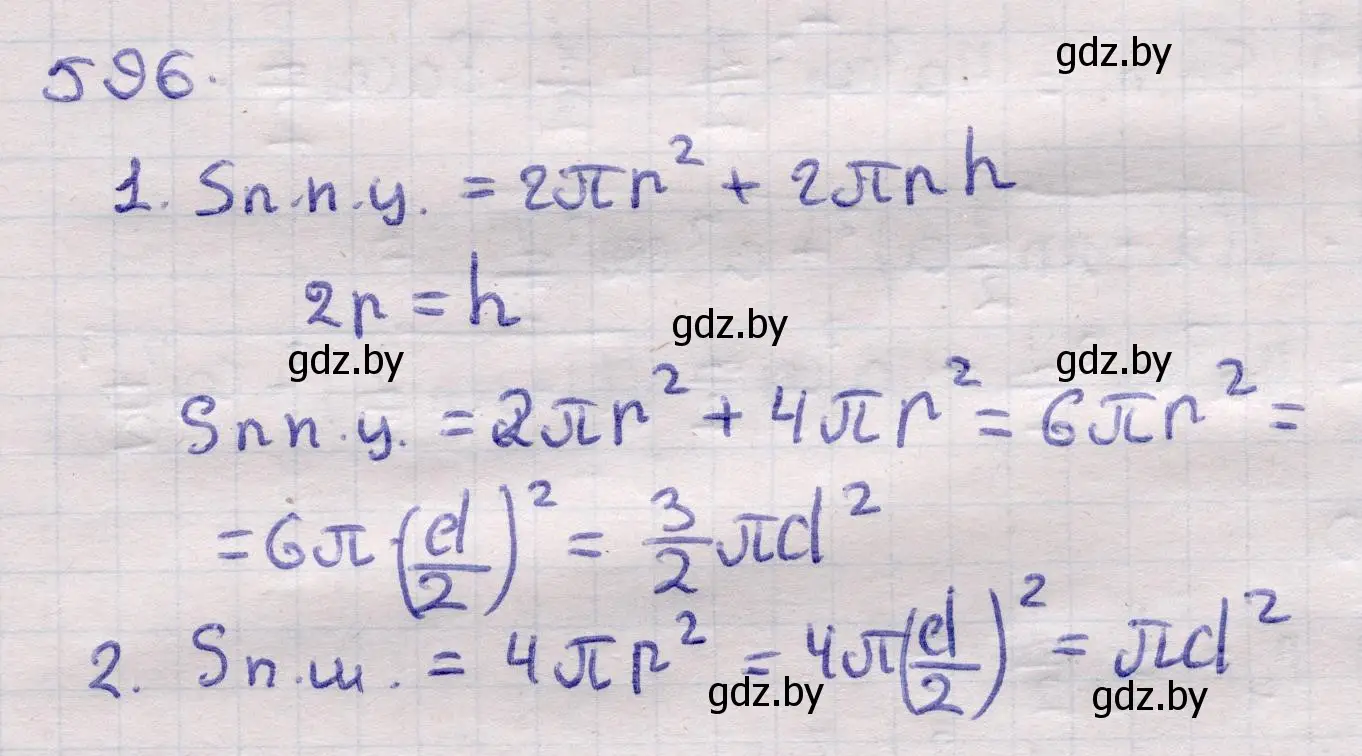 gdz.by
596.
1. Sп.п.ц. = 2πr² + 2πrh
2r = h
gdz.by
gdz.by
gdz.by
Sпп.ц. = 2πr² + 4πr² = 6πr² =
= 6π·(d/2)² = 3/2 πd²
2. Sп.ш. = 4πr² = 4π(d/2)² = πd²
gdz.by
gdz.by